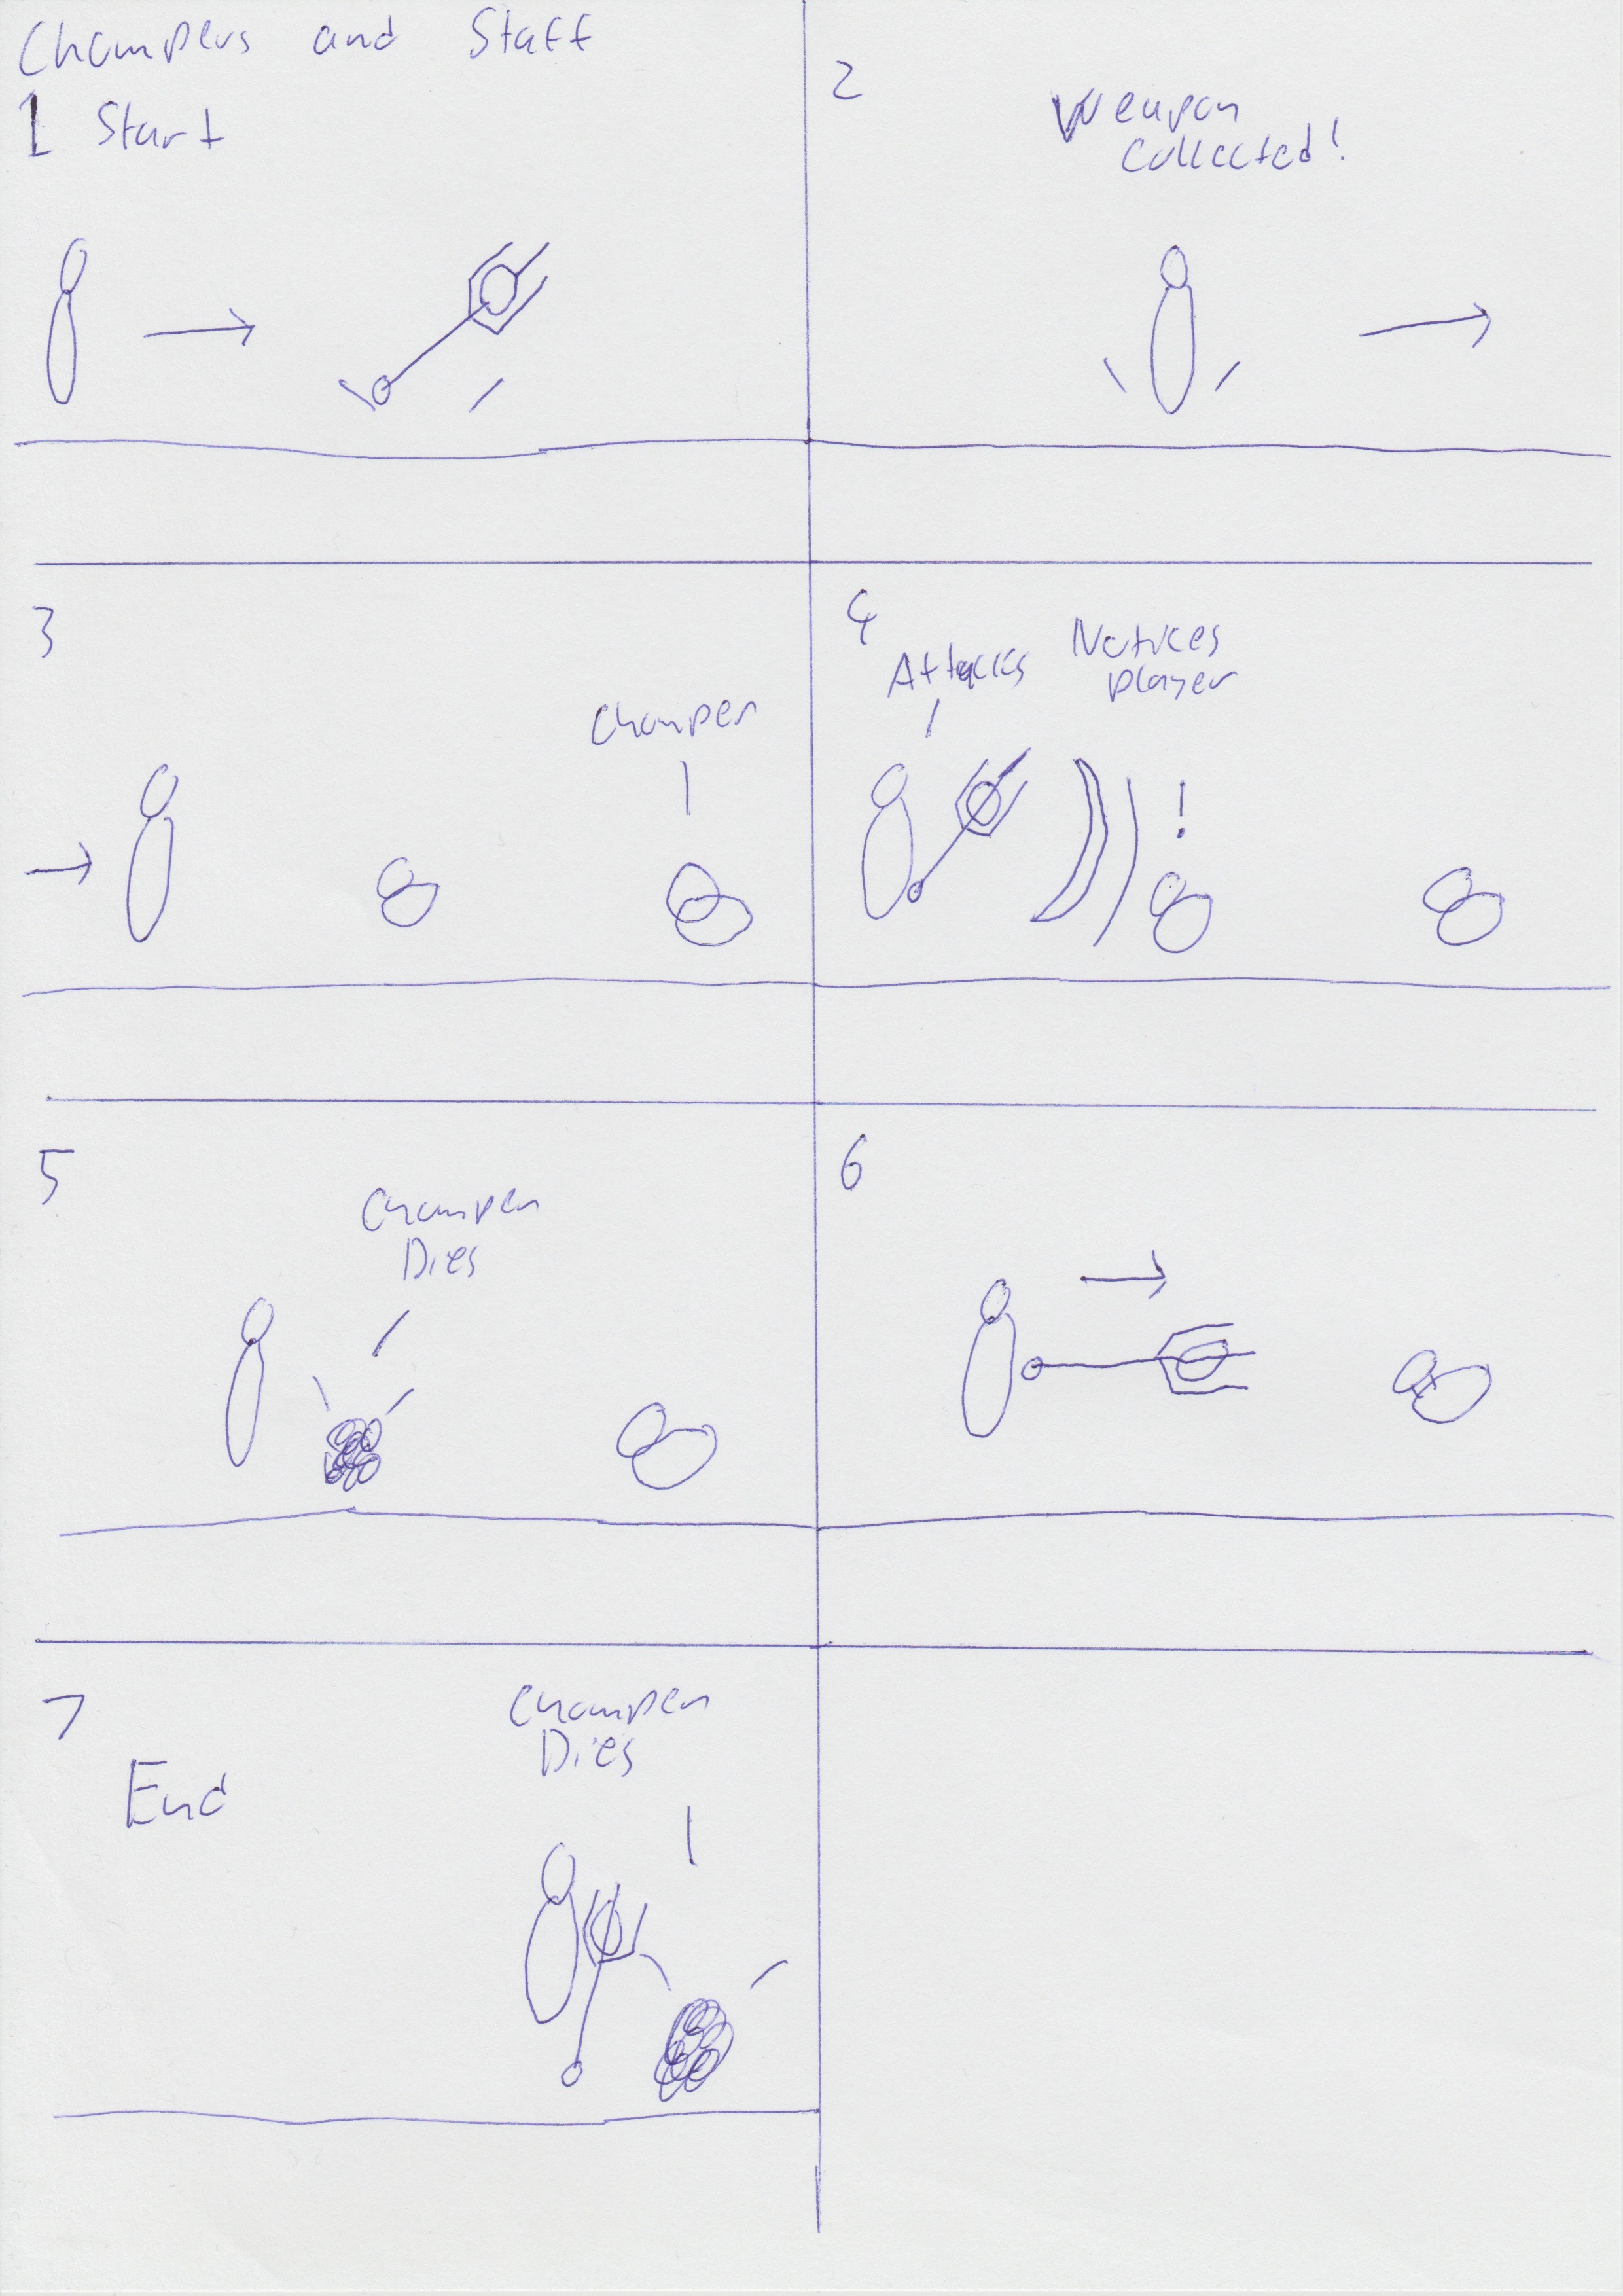 Chompers and Staff
1 Start
2
Weapon
Collected!
3
Chomper
4
Attacks
Notices
player
5
Chomper
Dies
6
7
Chomper
Dies
End